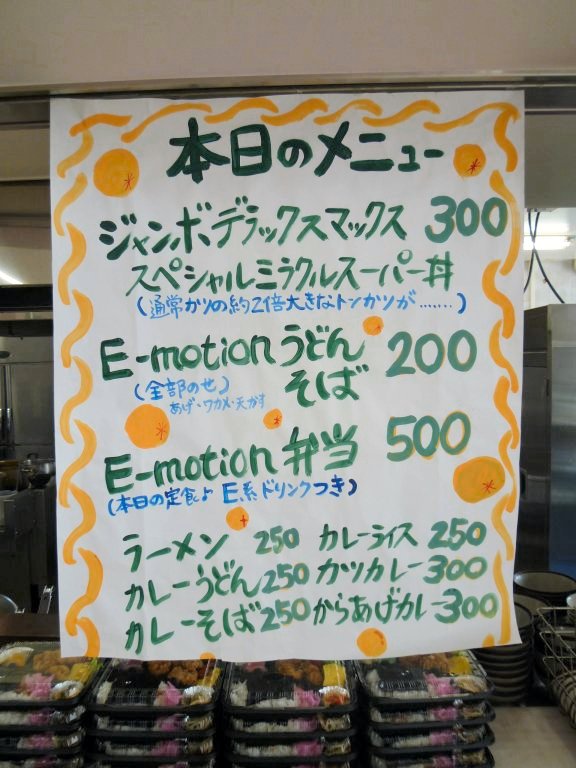 本日のメニュー
ジャンボデラックスマックス 300
スペシャルミラクルスーパー丼
(通常カツの約2倍大きなトンカツが.......)
E-motion うどん 200
そば
(全部のせ)
あげ・ワカメ・天かす
E-motion 弁当 500
(本日の定食よ E系ドリンクつき)
ラーメン 250 カレーライス 250
カレーうどん 250 カツカレー 300
カレーそば 250 からあげカレー 300